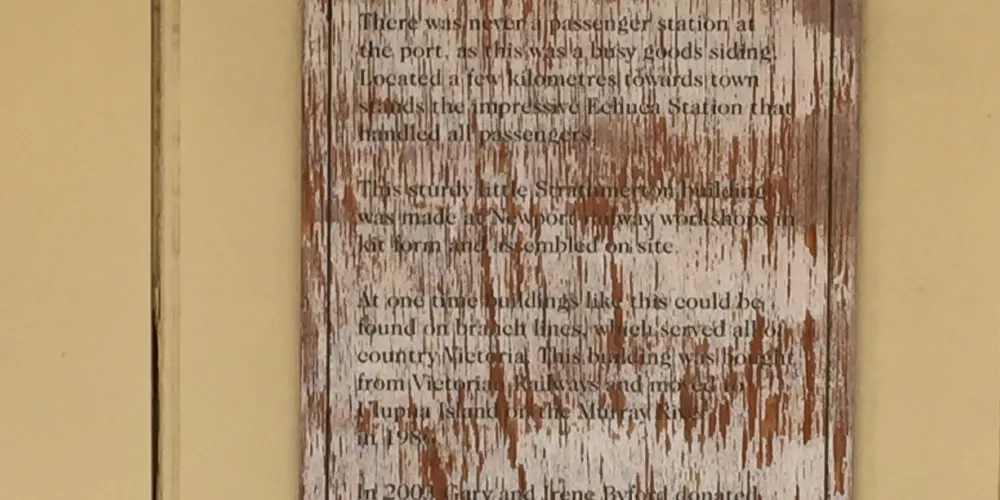 There was never a passenger station at
the port, as this was a busy goods siding.
Located a few kilometres towards town
stands the impressive Echuca Station that
handled all passengers.
This sturdy little Strathmerton building
was made at Newport railway workshops in
kit form and assembled on site.
At one time buildings like this could be
found on branch lines, which served all of
country Victoria. This building was bought
from Victorian Railways and moved to
Ulupna Island on the Murray River
in
In Gary and Irene Byford donated